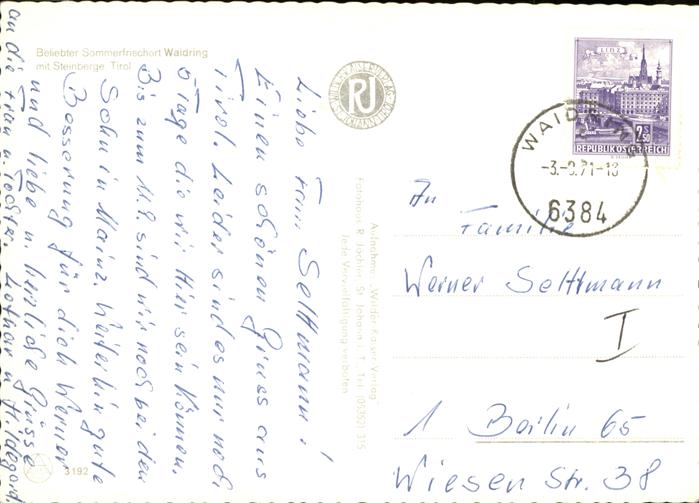 Beliebter Sommerfrischort Waidring
mit Steinberge, Tirol
Liebe Fam Selttmann!
Einen schönen Gruss aus
Tirol. Leider sind es nur noch
Tage die wir Hier sein können.
Bis zum 11.9. sind wir noch bei den
Schu in Mainz. Weiterhin gute
Besserung für dich Werner
und liebe u. herzliche Grüsse
an die Frau u. Tochter. Lothar u. Hildegard
3192
RJ
Aufnahme: „Wilder-Kaiser-Verlag"
Fotohaus R. Jöchler, St. Johann i. T., Tel. (05352) 315
Jede Vervielfältigung verboten
LINZ
2 S 50
REPUBLIK ÖSTERREICH
WAIDRING
-3.-9.71-18
6384
An
Familie
Werner Selttmann
I
1 Berlin 65
Wiesen Str. 38